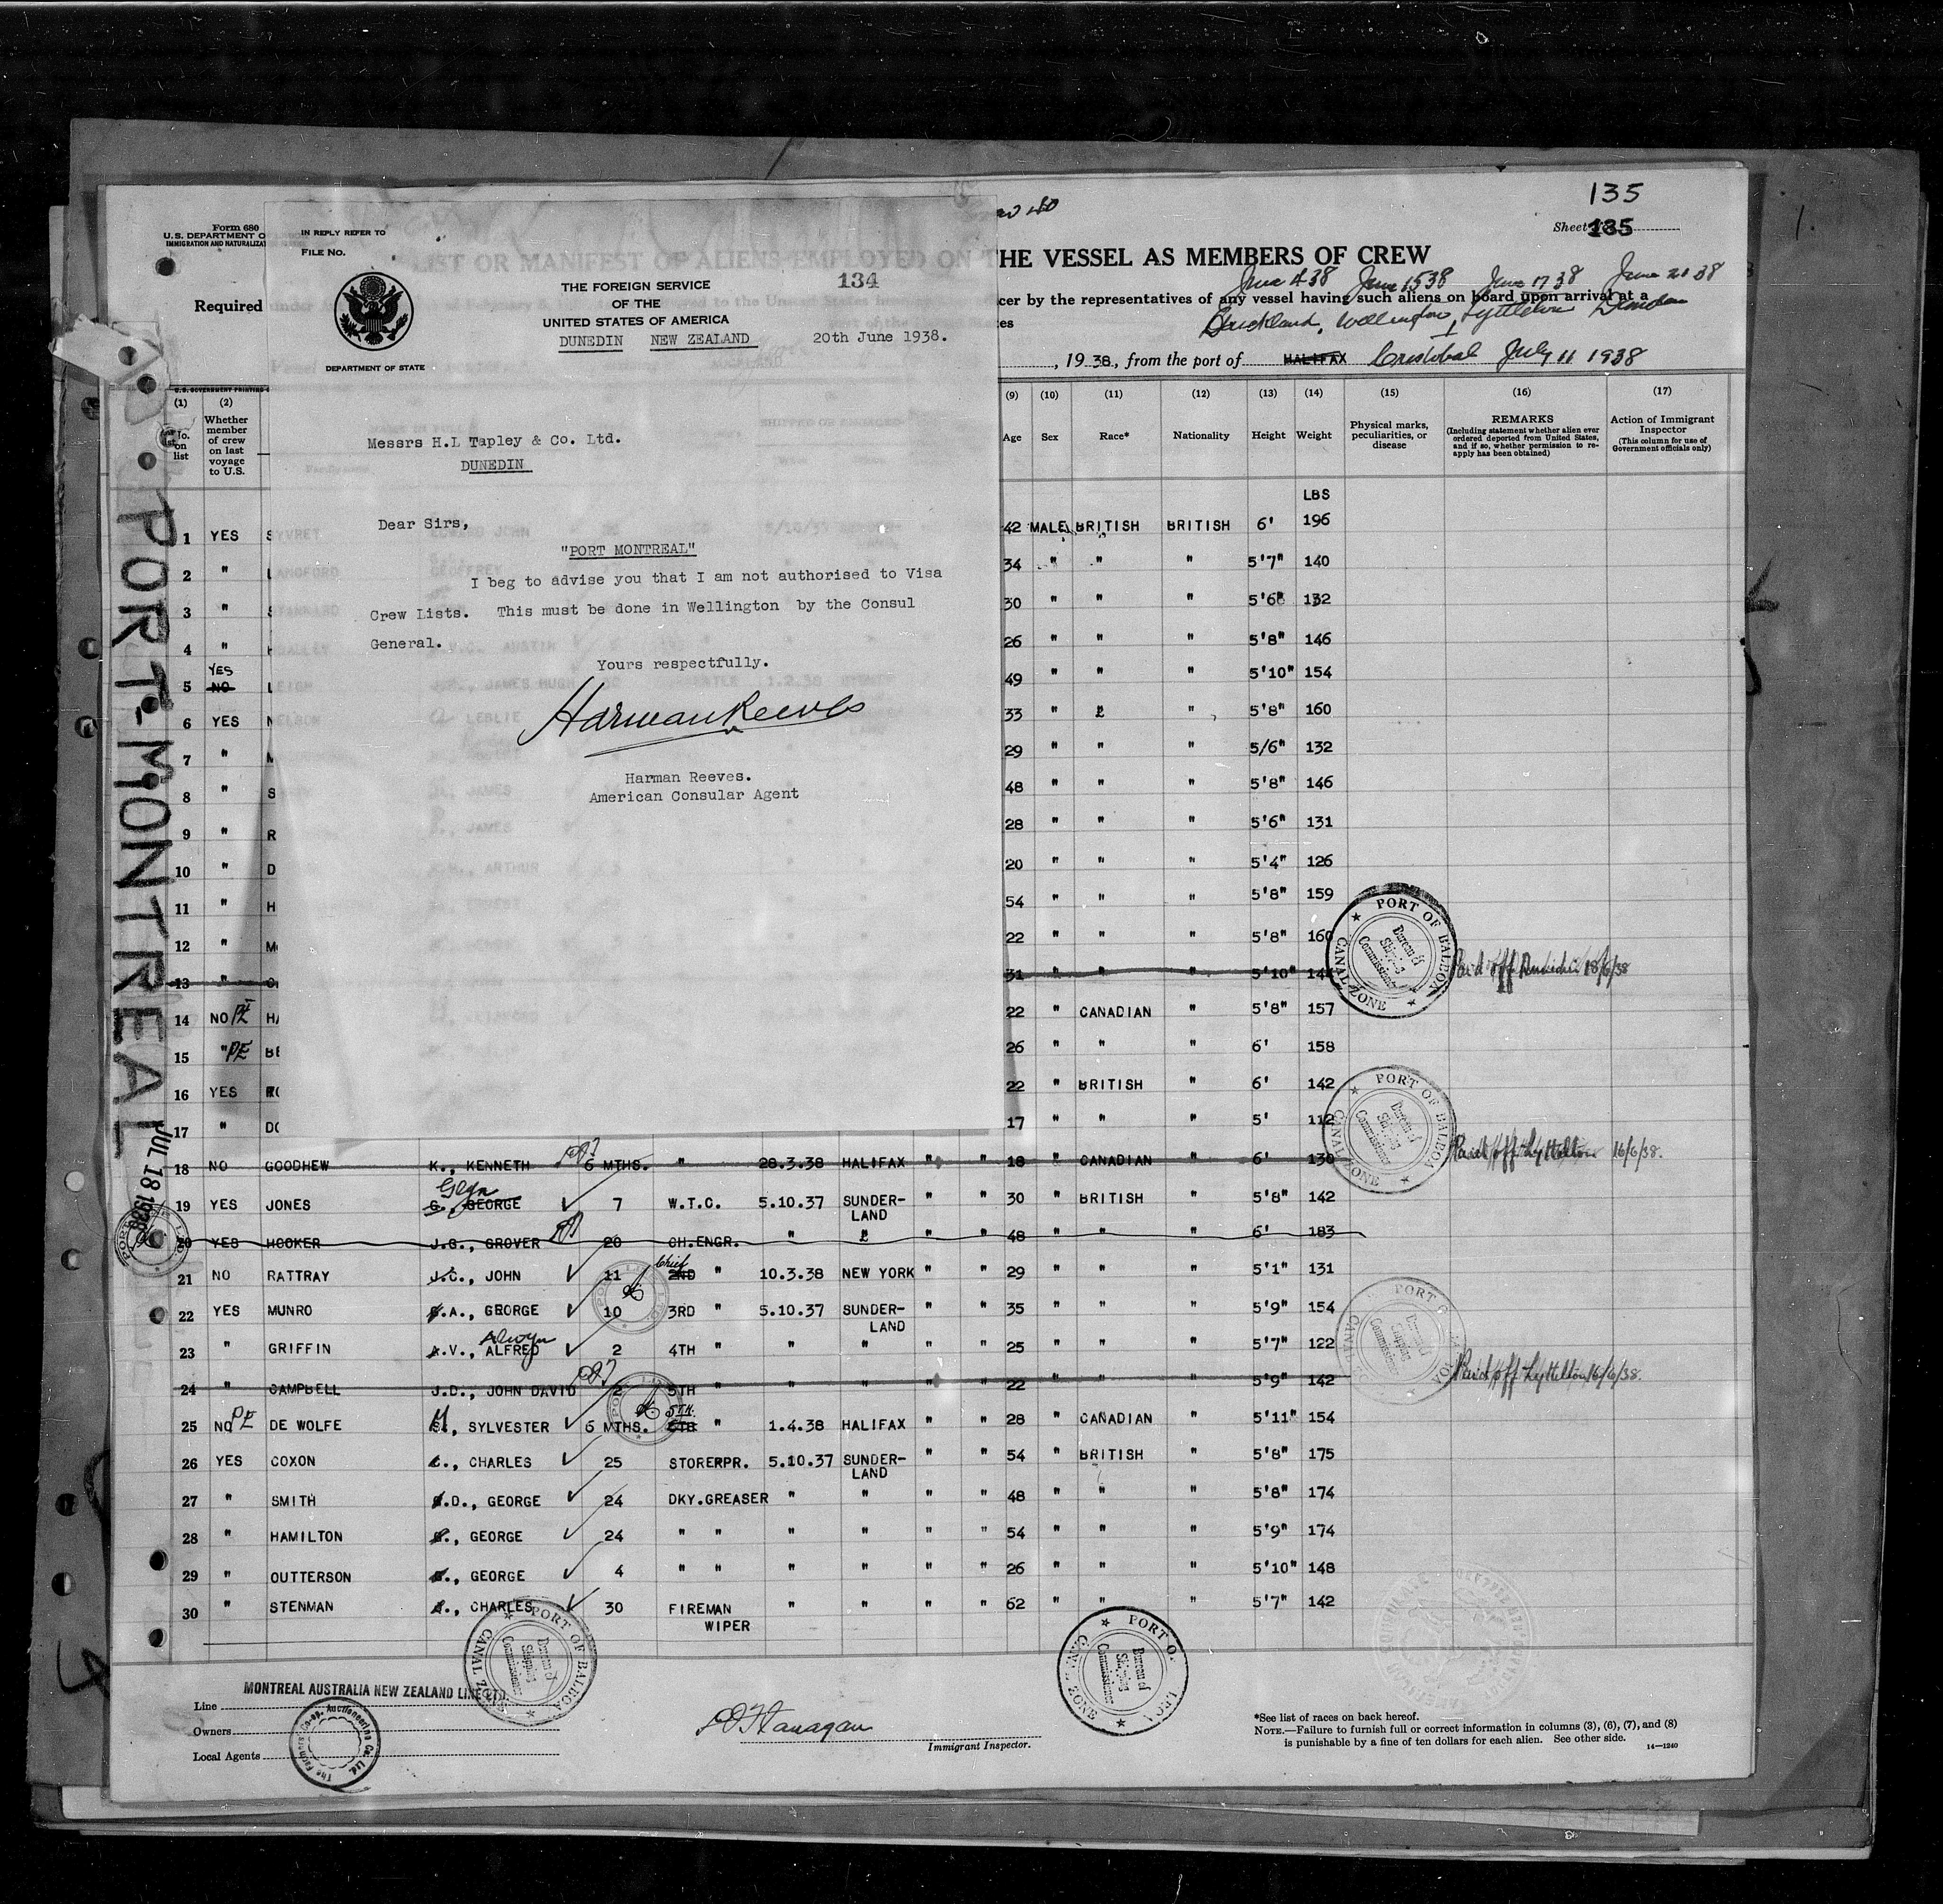 135
Sheet 135
Form 680
U.S. DEPARTMENT O
IMMIGRATION AND NATURALIZAT
Required
IN REPLY REFER TO
FILE No.
134
THE FOREIGN SERVICE
OF THE
UNITED STATES OF AMERICA
DUNEDIN NEW ZEALAND
20th June 1938.
DEPARTMENT OF STATE
Messrs H.L Tapley & Co. Ltd.
DUNEDIN
Dear Sirs,
"PORT MONTREAL"
I beg to advise you that I am not authorised to Visa
Crew Lists. This must be done in Wellington by the Consul
General.
Yours respectfully.
Harman Reeves
Harman Reeves.
American Consular Agent
HE VESSEL AS MEMBERS OF CREW
June 4 38 June 15 38 June 17 38 June 21 38
cer by the representatives of any vessel having such aliens on board upon arrival at a
tes
Auckland, Wellington, Lyttelton Dunedin
, 1938, from the port of HALIFAX Cristobal July 11 1938
(1) (2) (9) (10) (11) (12) (13) (14) (15) (16) (17)
No. on list
Whether member of crew on last voyage to U.S.
Age Sex Race* Nationality Height Weight
Physical marks, peculiarities, or disease
REMARKS
(Including statement whether alien ever ordered deported from United States, and if so, whether permission to re-apply has been obtained)
Action of Immigrant Inspector
(This column for use of Government officials only)
LBS
1 YES 42 MALE BRITISH BRITISH 6' 196
2 " 34 " " " 5'7" 140
3 " 30 " " " 5'6" 132
4 " 26 " " " 5'8" 146
YES
5 NO 49 " " " 5'10" 154
6 YES 33 " " " 5'8" 160
7 " 29 " " " 5/6" 132
8 " 48 " " " 5'8" 146
9 " 28 " " " 5'6" 131
10 " 20 " " " 5'4" 126
11 " 54 " " " 5'8" 159
12 " 22 " " " 5'8" 160
13 " 31 " " " 5'10" Paid off Dunedin 18/6/38
14 NO PE 22 " CANADIAN " 5'8" 157
15 " PE 26 " " " 6' 158
16 YES 22 " BRITISH " 6' 142
17 " 17 " " " 5' 112
18 NO GOODHEW K., KENNETH 6 MTHS. " 28.3.38 HALIFAX " " 18 " CANADIAN " 6' 130 Paid off Lyttelton 16/6/38.
19 YES JONES G., GEORGE 7 W.T.O. 5.10.37 SUNDER-LAND " " 30 " BRITISH " 5'8" 142
20 YES HOOKER J.G., GROVER 20 CH.ENGR. " " 48 " " " 6' 183
21 NO RATTRAY J.C., JOHN 11 Chief 2ND " 10.3.38 NEW YORK " " 29 " " " 5'1" 131
22 YES MUNRO G.A., GEORGE 10 3RD " 5.10.37 SUNDER-LAND " " 35 " " " 5'9" 154
23 " GRIFFIN A.V., ALFRED Alwyn 2 4TH " " " " " 25 " " " 5'7" 122
24 " CAMPBELL J.D., JOHN DAVID 2 5TH " " " " " 22 " " " 5'9" 142 Paid off Lyttelton 16/6/38.
25 NO PE DE WOLFE SYLVESTER 6 MTHS. 5TH 6TH " 1.4.38 HALIFAX " " 28 " CANADIAN " 5'11" 154
26 YES COXON C., CHARLES 25 STORERPR. 5.10.37 SUNDER-LAND " " 54 " BRITISH " 5'8" 175
27 " SMITH G.D., GEORGE 24 DKY.GREASER " " " " 48 " " " 5'8" 174
28 " HAMILTON G., GEORGE 24 " " " " " " 54 " " " 5'9" 174
29 " OUTTERSON G., GEORGE 4 " " " " " " 26 " " " 5'10" 148
30 " STENMAN C., CHARLES 30 FIREMAN WIPER " " " " 62 " " " 5'7" 142
PORT-MONTREAL
JUL 18 1938
PORT OF BALBOA
CANAL ZONE
Bureau of
Shipping
Commissioner
Line MONTREAL AUSTRALIA NEW ZEALAND LINE LTD.
Owners
Local Agents
Immigrant Inspector.
*See list of races on back hereof.
NOTE.—Failure to furnish full or correct information in columns (3), (6), (7), and (8)
is punishable by a fine of ten dollars for each alien. See other side.
14—1240